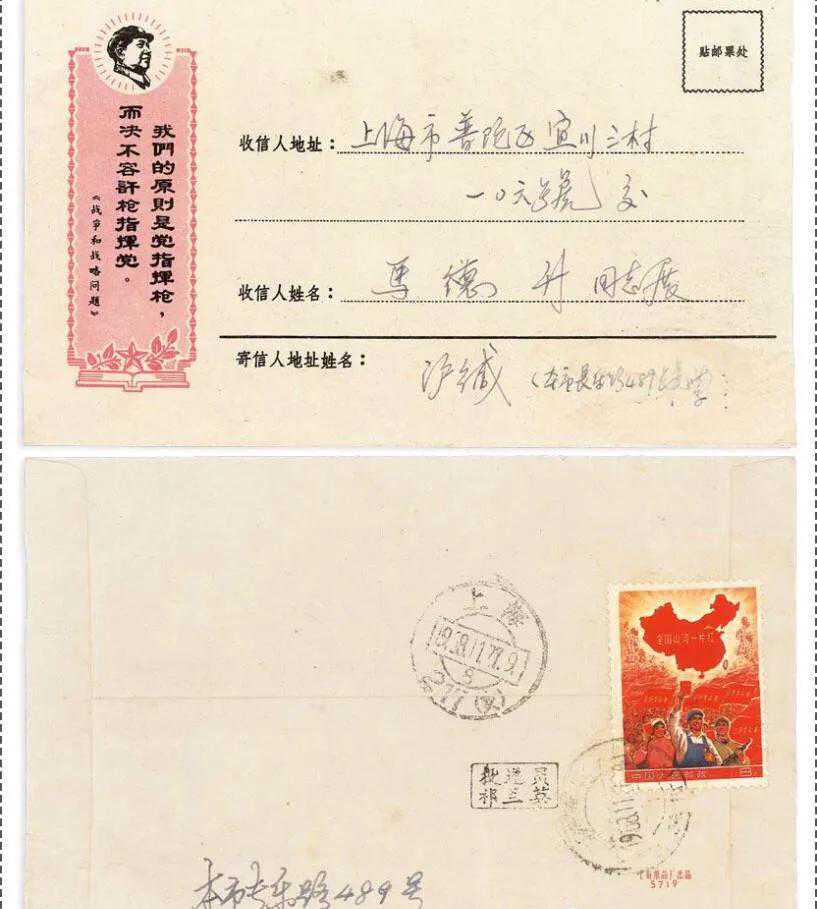 我們的原則是党指揮枪，
而决不容許枪指揮党。
《战争和战略问题》
贴邮票处
收信人地址：上海市普陀区宜川三村
一〇六号 交
收信人姓名：马德升 同志展
寄信人地址姓名：沪缄
上海
1968.11.27.9
全国山河一片红
中国人民邮政
8
投递员
祁兰英
5719
本市长乐路489号